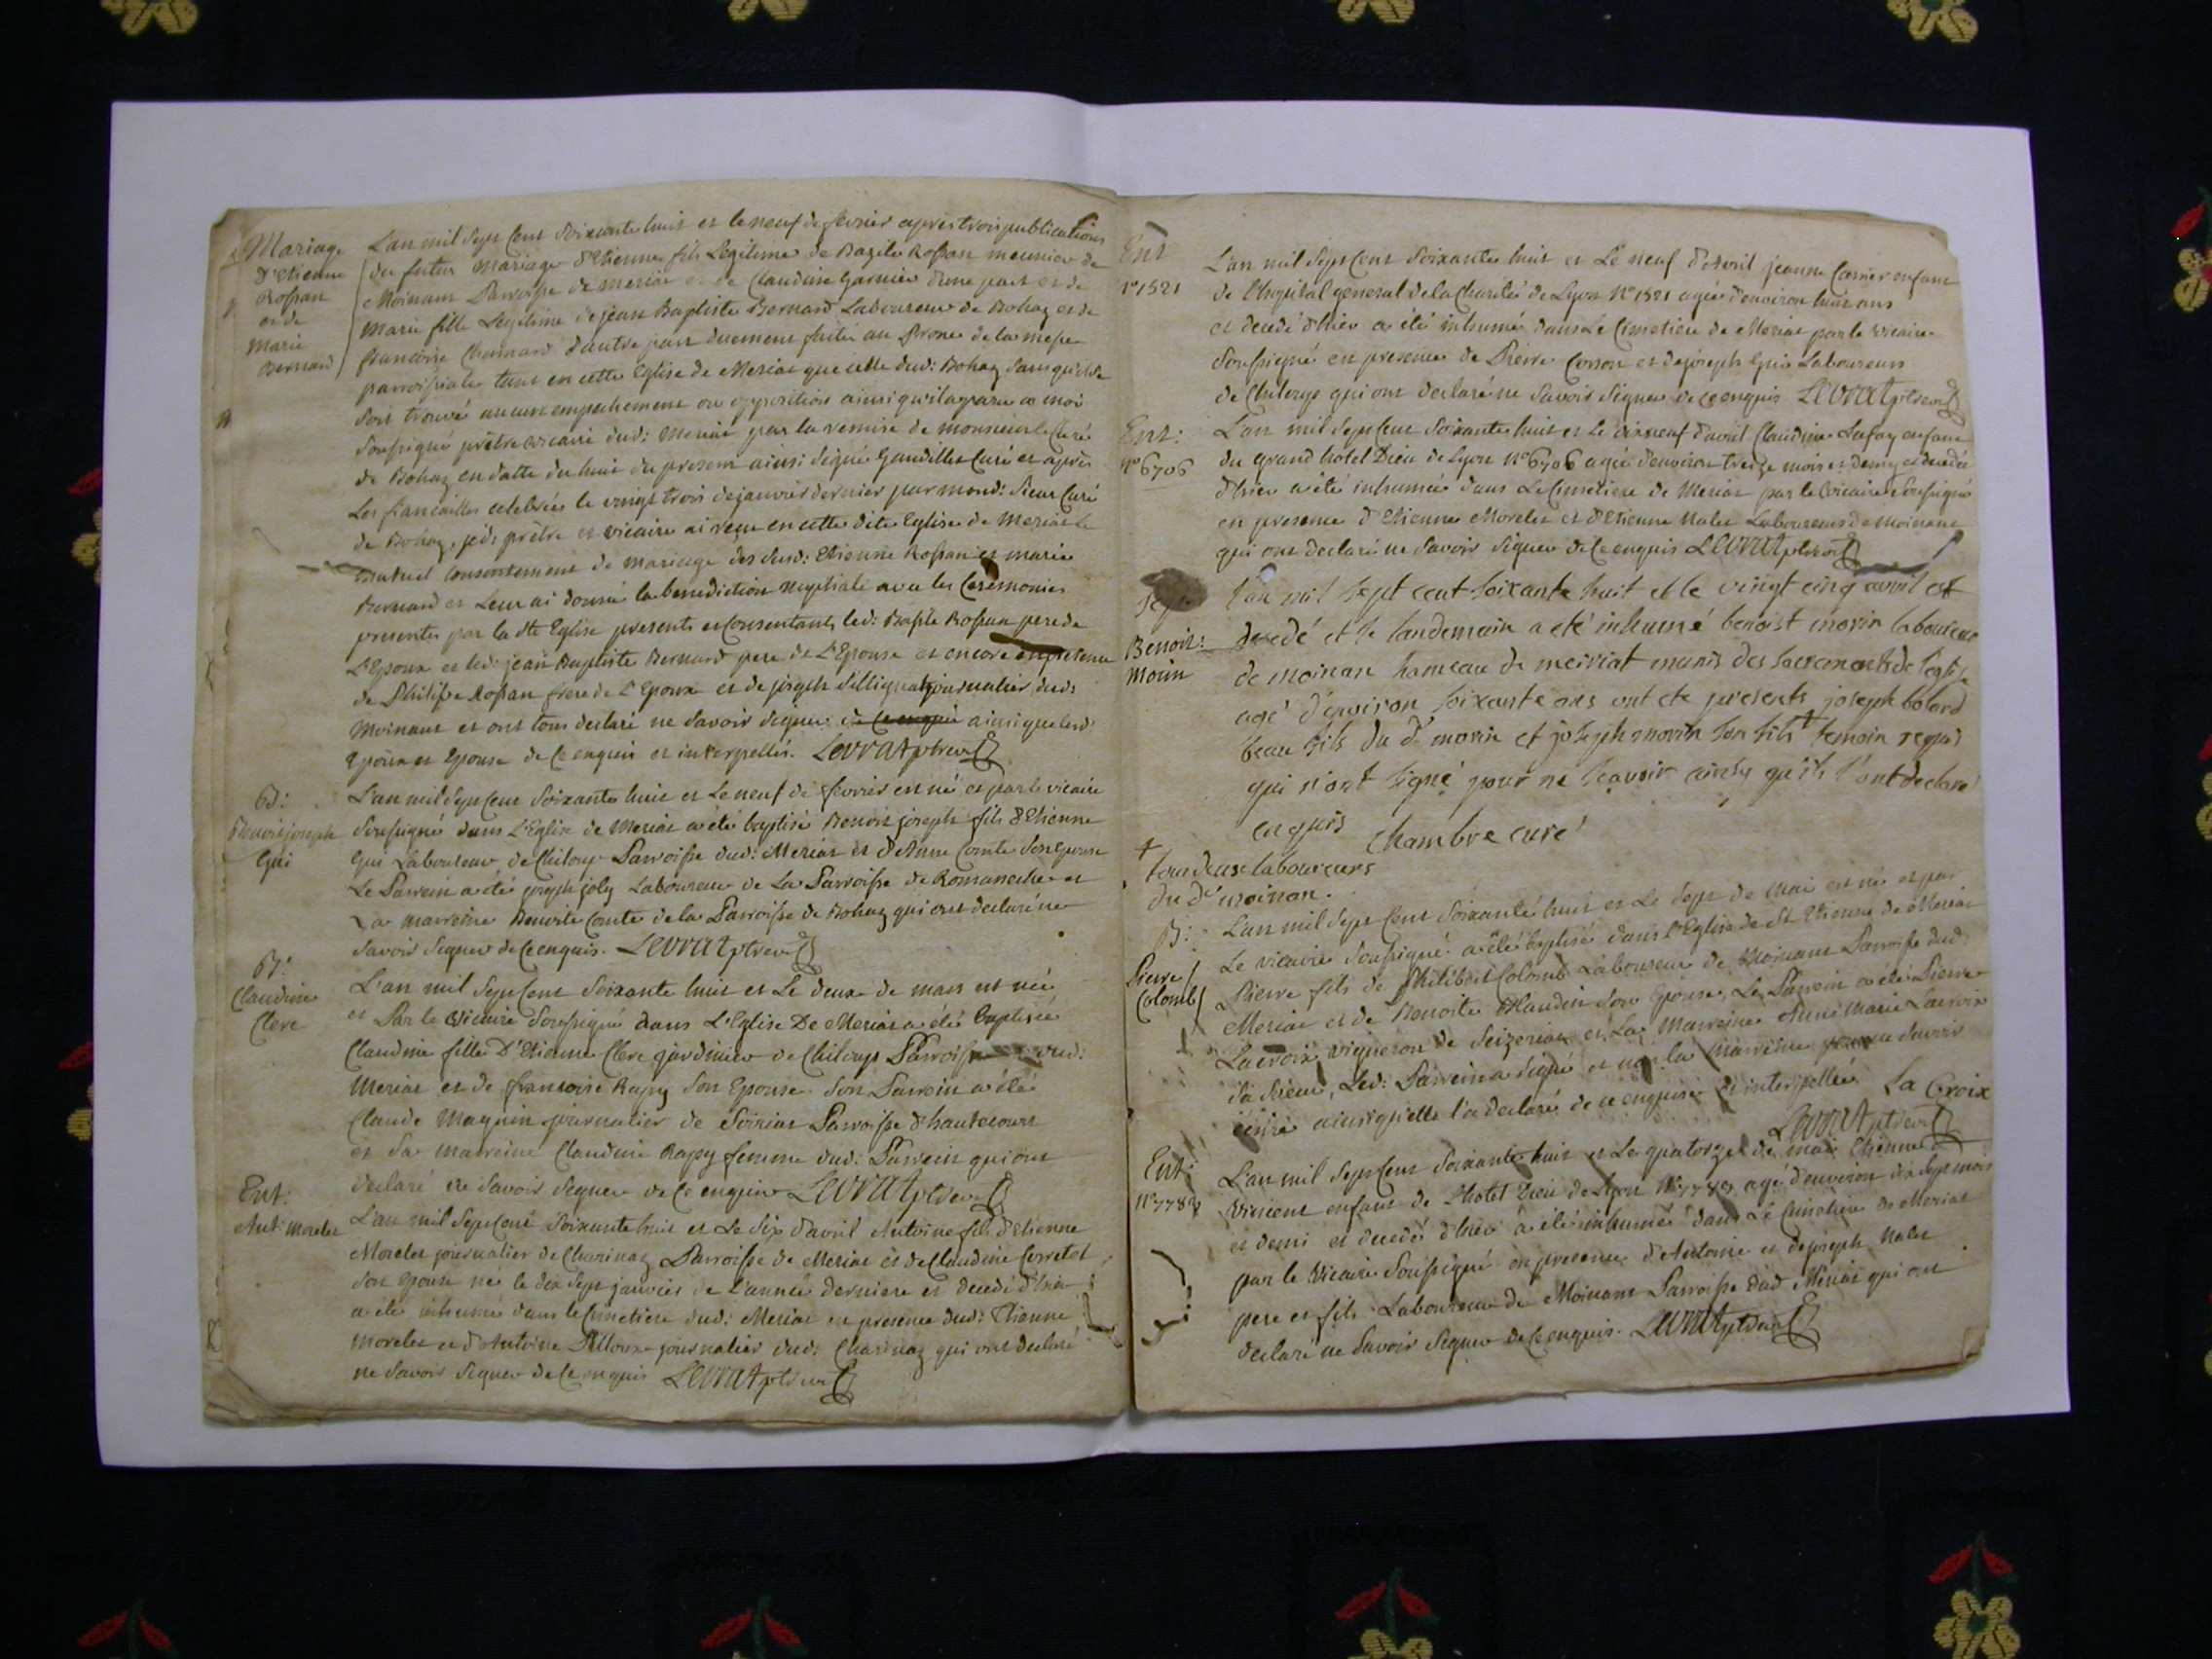 Mariage
d'Etienne
Rossan
et de
Marie
Bernard
L'an mil sept cent soixante huit et le neuf de fevrier après trois publications
du futur Mariage d'Etienne fils Legitime de Bazile Rossan meunier de
Moinans Parroisse de Meriat et de Claudine Garnier d'une part et de
Marie fille Legitime de jean Baptiste Bernard Laboureur de Bohaz et de
francoise d'autre part duement faites au Prone de la messe
parroissiale tant en cette Eglise de Meriat que celle dud: Bohaz sans qu'il se
soit trouvé aucun empechement ou opposition ainsi qu'il a paru a moi
soussigné prêtre vicaire dud: Meriat par la remise de monsieur le Curé
de Bohaz en datte du huit du present ainsi signé Gaudillet Curé et après
Les fiancailles celebrées le vingt trois de janvier dernier par mond: sieur Curé
de Bohaz, je dt prêtre et vicaire ai reçu en cette dite Eglise de Meriat le
mutuel consentement de mariage des susd: Etienne Rossan et marie
Bernard et Leur ai donné la benediction nuptiale avec les Ceremonies
presentes par la dte Eglise presents et consentants led: Basile Rossan pere de
L'Epoux et led: jean Baptiste Bernard pere de L'Epouse et encore en presence
de Philipe Rossan frere de L'Epoux et de joseph journalier dud:
Moinans et ont tous declaré ne savoir signer de ce enquis ainsi que lesd:
Epoux et Epouse de ce enquis et interpellés. Levrat ptre v.
B:
Benoit joseph
Gui
L'an mil sept cent soixante huit et Le neuf de fevrier est né et par le vicaire
soussigné dans L'Eglise de Meriat a été baptisé Benoit joseph fils d'Etienne
Gui Laboureur de Chiloup Parroisse dud: Meriat et d'Anne Comte son Epouse
Le Parrein a été joseph joly Laboureur de La Parroisse de Romaneche et
La marreine Benoite Comte de la Parroisse de Bohaz qui ont declaré ne
savoir signer de ce enquis. Levrat ptre v.
B:
Claudine
Clerc
L'an mil sept cent soixante huit et Le deux de mars est née
et Par le Vicaire soussigné dans L'Eglise De Meriat a été baptisée
Claudine fille D'Etienne Clerc jardinier de Chiloup Parroisse dud:
Meriat et de francoise Rapy son Epouse. Son Parrein a été
Claude Maguin journalier de Soiriat Parroisse d'hautecourt
et Sa marreine Claudine Rapy femme dud: Parrein qui ont
declaré ne savoir signer de ce enquis Levrat ptre v.
Ent:
Ant: Morelet
L'an mil sept cent soixante huit et Le six d'avril Antoine fils d'Etienne
Morelet journalier de Charinaz Parroisse de Meriat et de Claudine Cerretet
son Epouse né le dix sept janvier de L'année derniere et decedé d'hier
a été inhumé dans le Cimetiere dud: Meriat en presence dud: Etienne
Morelet et d'Antoine Pelloux journalier dud: Charinaz qui ont declaré
ne savoir signer de ce enquis Levrat ptre v.
Ent
n° 1521
L'an mil sept cent soixante huit et Le neuf d'Avril jeanne Carrier enfant
de l'hopital general de la Charité de Lyon N° 1521 agée d'environ huit ans
et decedé d'hier a été inhumé dans Le Cimetiere de Meriat par le vicaire
soussigné en presence de Pierre Corson et de joseph Gui Laboureurs
de Chiloup qui ont declaré ne savoir signer de ce enquis Levrat ptre v.
Ent:
n° 6706
L'an mil sept cent soixante huit et Le dixneuf d'avril Claudine Lafay enfant
du grand hôtel Dieu de Lyon N° 6706 agée d'environ treize mois et demy et decedée
d'hier a été inhumée dans Le Cimetiere de Meriat par le Vicaire soussigné
en presence d'Etienne Morelet et d'Etienne Malet Laboureurs de Moinans
qui ont declaré ne savoir signer de ce enquis Levrat ptre v.
Benoit:
Morin
l'an mil sept cent soixante huit et le vingt cinq avril est
decedé et le landemain a eté inhumé benoist morin laboureur
de moinan hameau de meiriat munis des sacrements de l'eglise
agé d'environ soixante ans ont ete presents joseph bolard
beau fils du dt morin et joseph morin son fils + temoin requis
qui n'ont signé pour ne scavoir ainsy qu'ils l'ont declaré
enquis Chambre curé
+
tous deux laboureurs
du dt moinan.
B:
Pierre
Colomb
L'an mil sept cent soixante huit et Le sept de mai est né et par
Le vicaire soussigné a été baptisé dans l'Eglise de St Etienne de Meriat
Pierre fils de Philibert Colomb Laboureur de Moinans Parroisse dud:
Meriat et de Benoite Blandin son Epouse, Le Parrein a été Pierre
Lacroix vigneron de Seizeriat et La Marreine Anne Marie Lacroix
sa Soeur, Led: Parrein a signé et non la marreine pour ne savoir
ecrire ainsi qu'elle l'a declaré de ce enquise et interpellée La Croix
Levrat ptre v.
Ent:
N° 7789
L'an mil sept cent soixante huit et Le quatorze de mai Etienne
Vincent enfant de L'hotel Dieu de Lyon N° 7789 agé d'environ dix sept mois
et demi et decedé d'hier a été inhumé dans Le Cimetiere de Meriat
par le Vicaire soussigné en presence d'Antoine et de joseph Malet
pere et fils Laboureur de Moinans Parroisse dud Meriat qui ont
declaré ne savoir signer de ce enquis. Levrat ptre v.